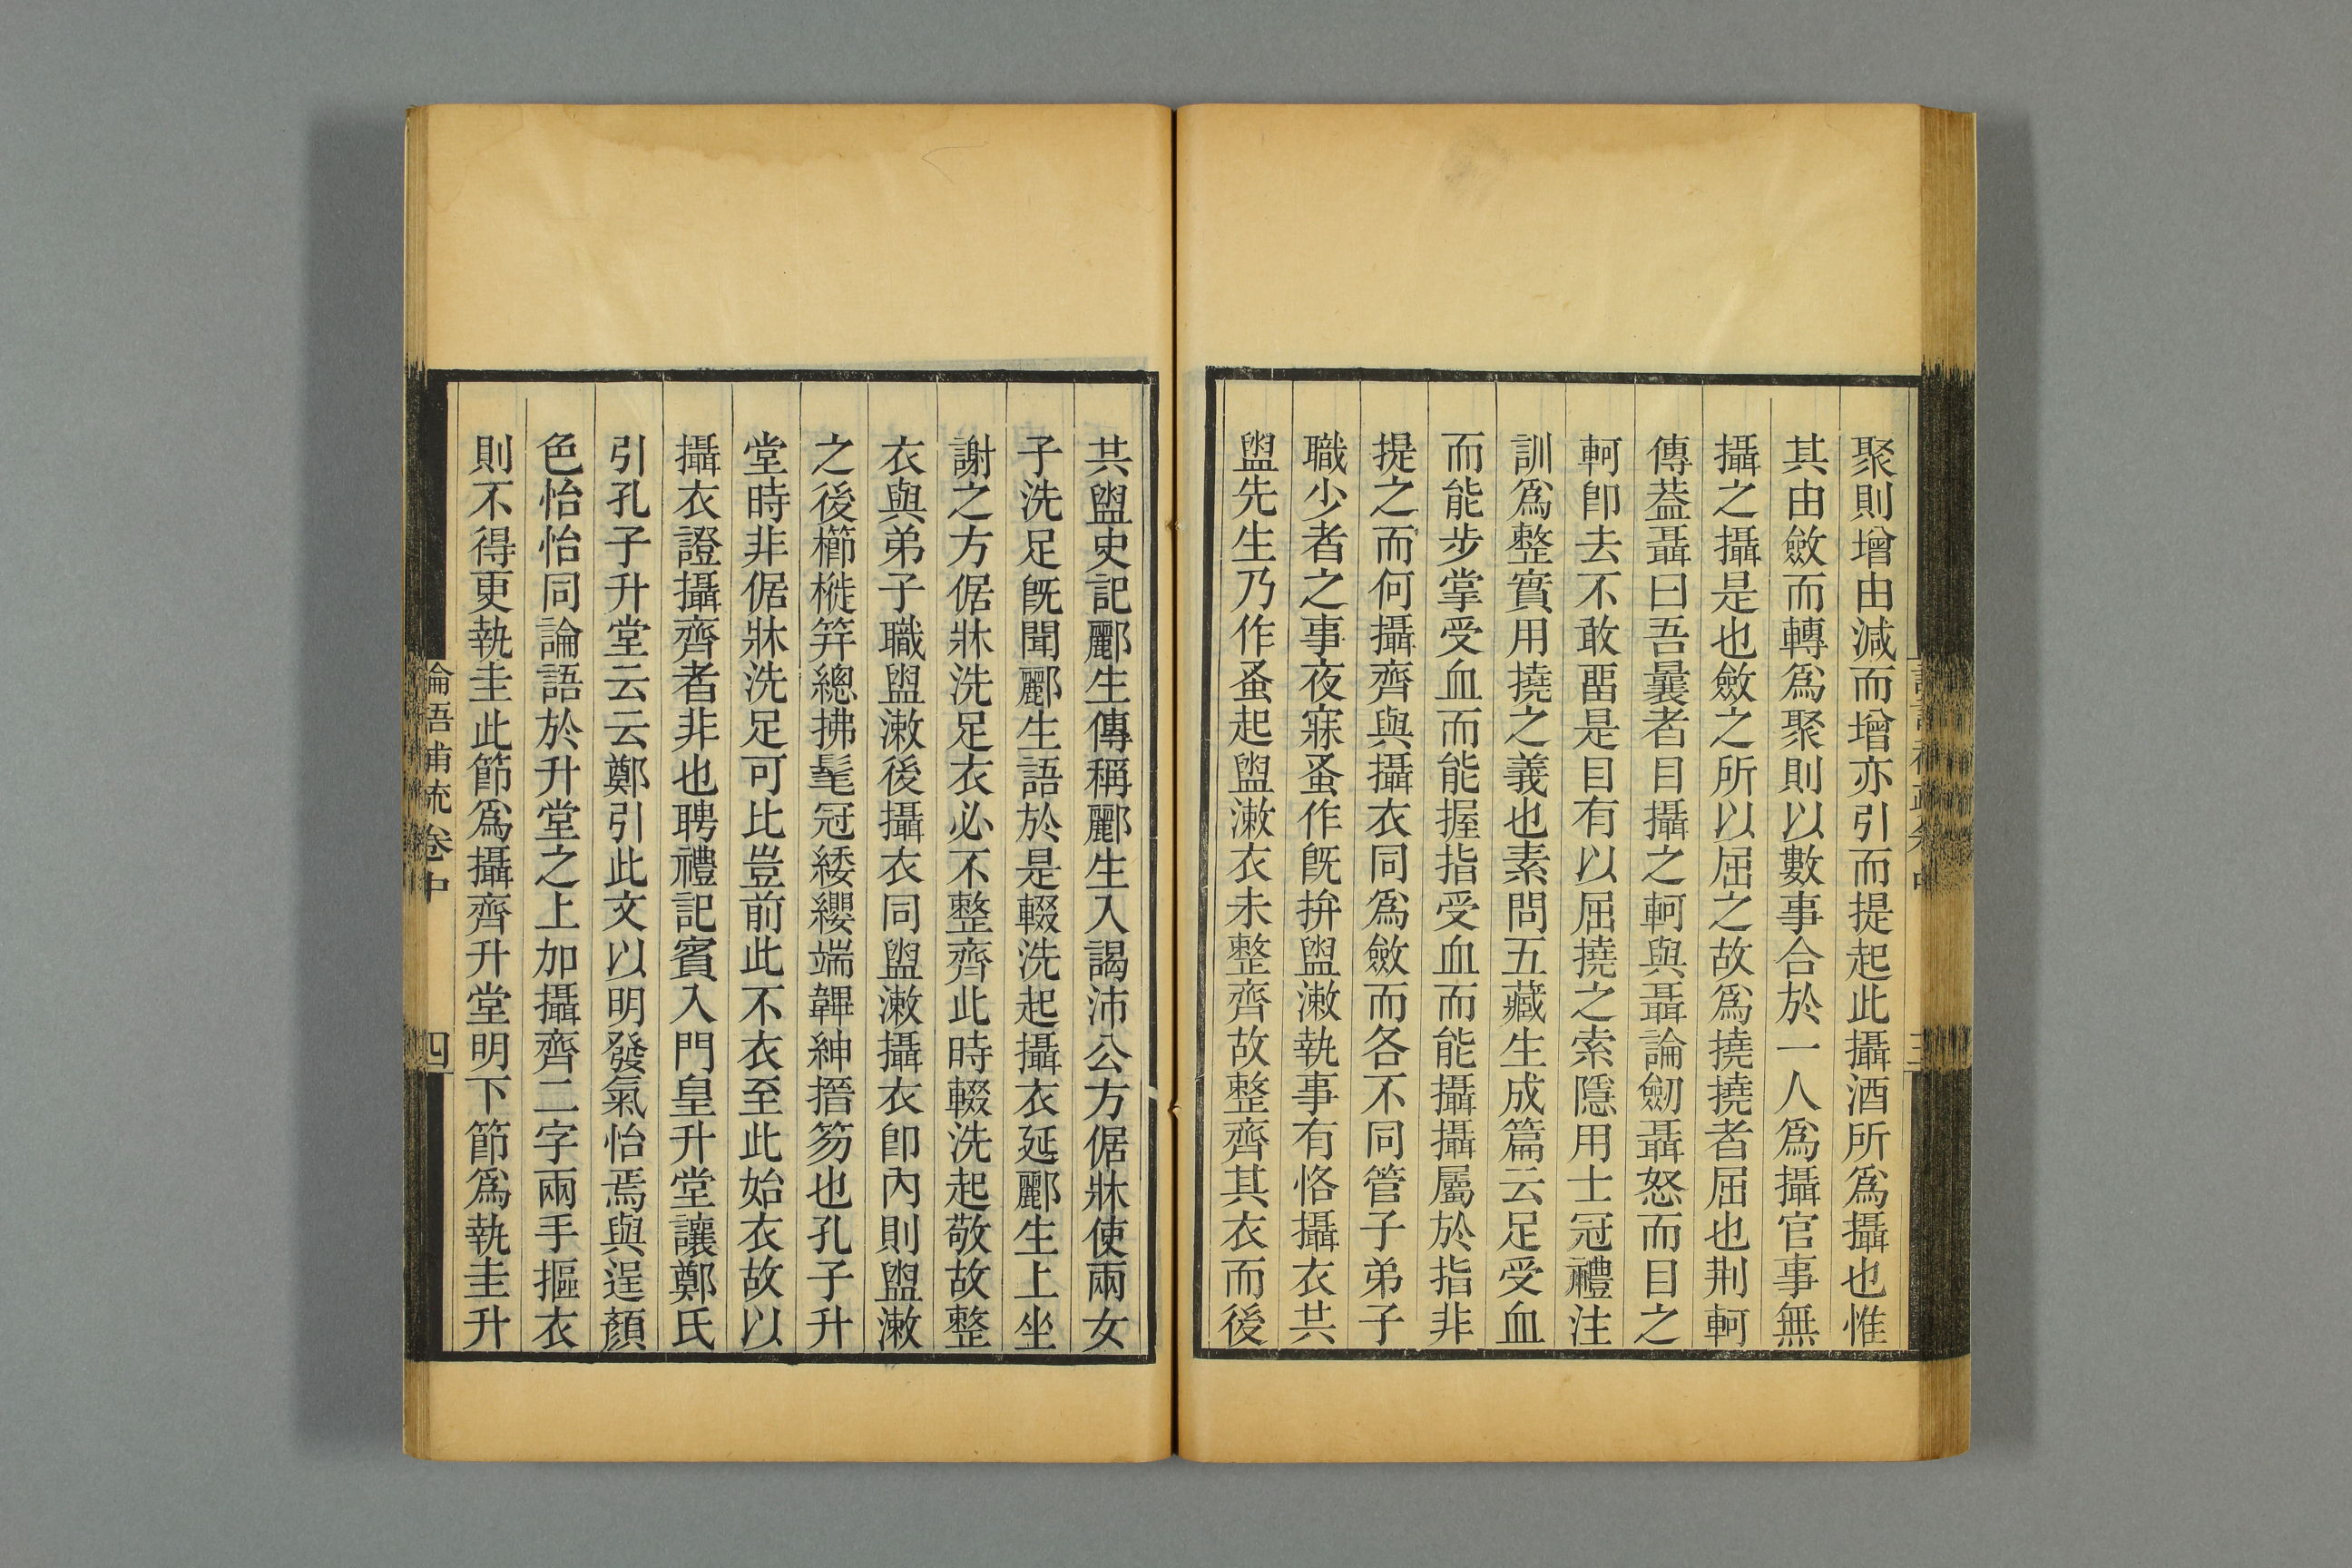 聚則增由減而增亦引而提起此攝酒所爲攝也惟
其由斂而轉爲聚則以數事合於一人爲攝官事無
攝之攝是也斂之所以屈之故爲撓撓者屈也荆軻
傳葢聶曰吾曩者目攝之軻與聶論劒聶怒而目之
軻卽去不敢畱是目有以屈撓之索隱用士冠禮注
訓爲整實用撓之義也素問五藏生成篇云足受血
而能步掌受血而能握指受血而能攝攝屬於指非
提之而何攝齊與攝衣同爲斂而各不同管子弟子
職少者之事夜寐蚤作旣拚盥漱執事有恪攝衣共
盥先生乃作蚤起盥漱衣未整齊故整齊其衣而後
共盥史記酈生傳稱酈生入謁沛公方倨牀使兩女
子洗足旣聞酈生語於是輟洗起攝衣延酈生上坐
謝之方倨牀洗足衣必不整齊此時輟洗起敬故整
衣與弟子職盥漱後攝衣同盥漱攝衣卽內則盥漱
之後櫛縰笄總拂髦冠緌纓端韠紳搢笏也孔子升
堂時非倨牀洗足可比豈前此不衣至此始衣故以
攝衣證攝齊者非也聘禮記賓入門皇升堂讓鄭氏
引孔子升堂云云鄭引此文以明發氣怡焉與逞顏
色怡怡同論語於升堂之上加攝齊二字兩手摳衣
則不得更執圭此節爲攝齊升堂明下節爲執圭升
論語補疏卷中
四